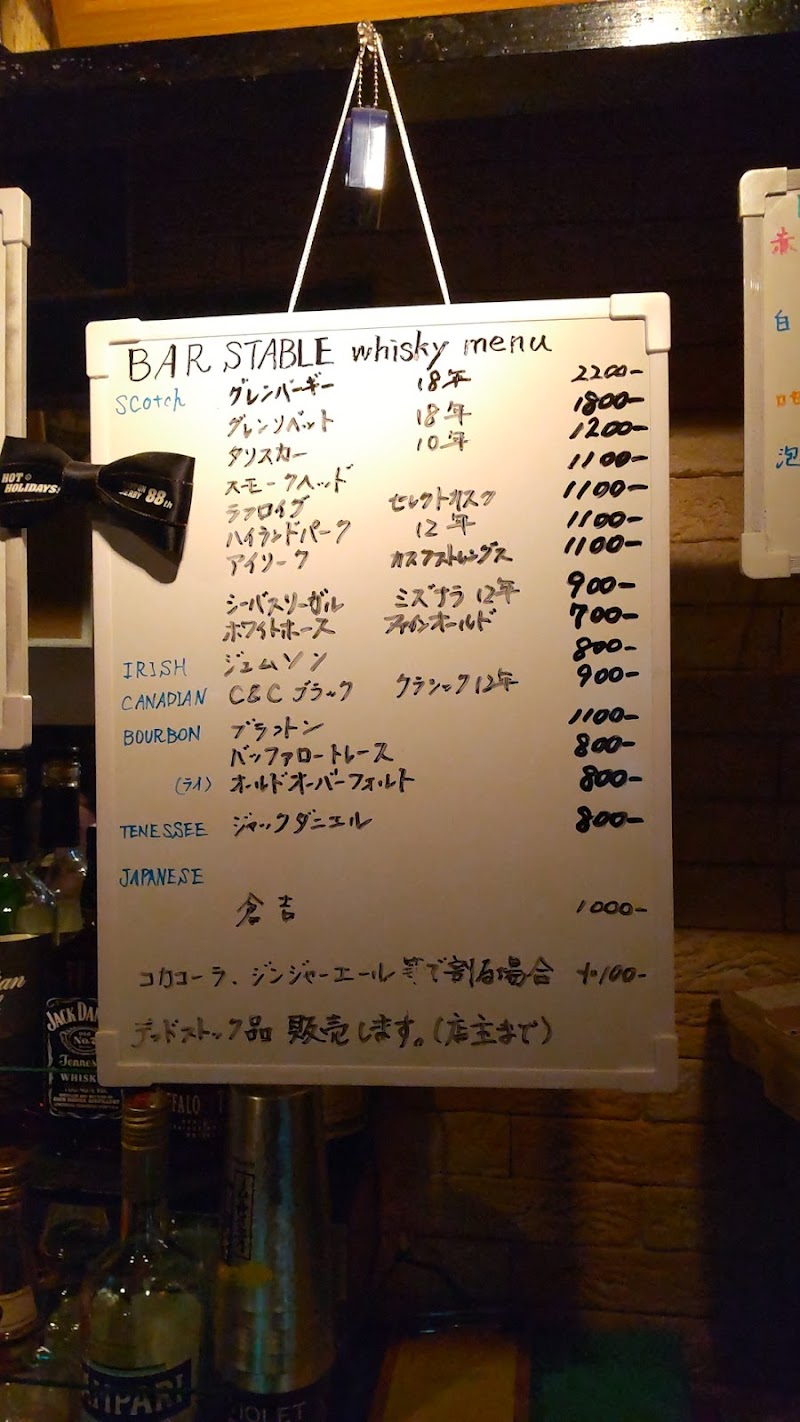 BAR STABLE whisky menu
Scotch グレンバーギー 18年 2200-
グレンリベット 18年 1800-
タリスカー 10年 1200-
スモークヘッド 1100-
ラフロイグ セレクトカスク 1100-
ハイランドパーク 12年 1100-
アイリーク カスクストレングス 1100-
シーバスリーガル ミズナラ 12年 900-
ホワイトホース ファインオールド 700-
IRISH ジェムソン 800-
CANADIAN C&C ブラック クラシック12年 900-
BOURBON ブラントン 1100-
バッファロートレース 800-
(ライ) オールドオーバーフォルト 800-
TENESSEE ジャックダニエル 800-
JAPANESE
倉吉 1000-
コカコーラ、ジンジャーエール等で割る場合 +100-
デッドストック品 販売します。(店主まで)
HOT HOLIDAYS!
88th
赤
白
泡
JACK DANIEL
Old
No.7
Tennessee
WHISKEY
FALO
MPARI
VIOLET